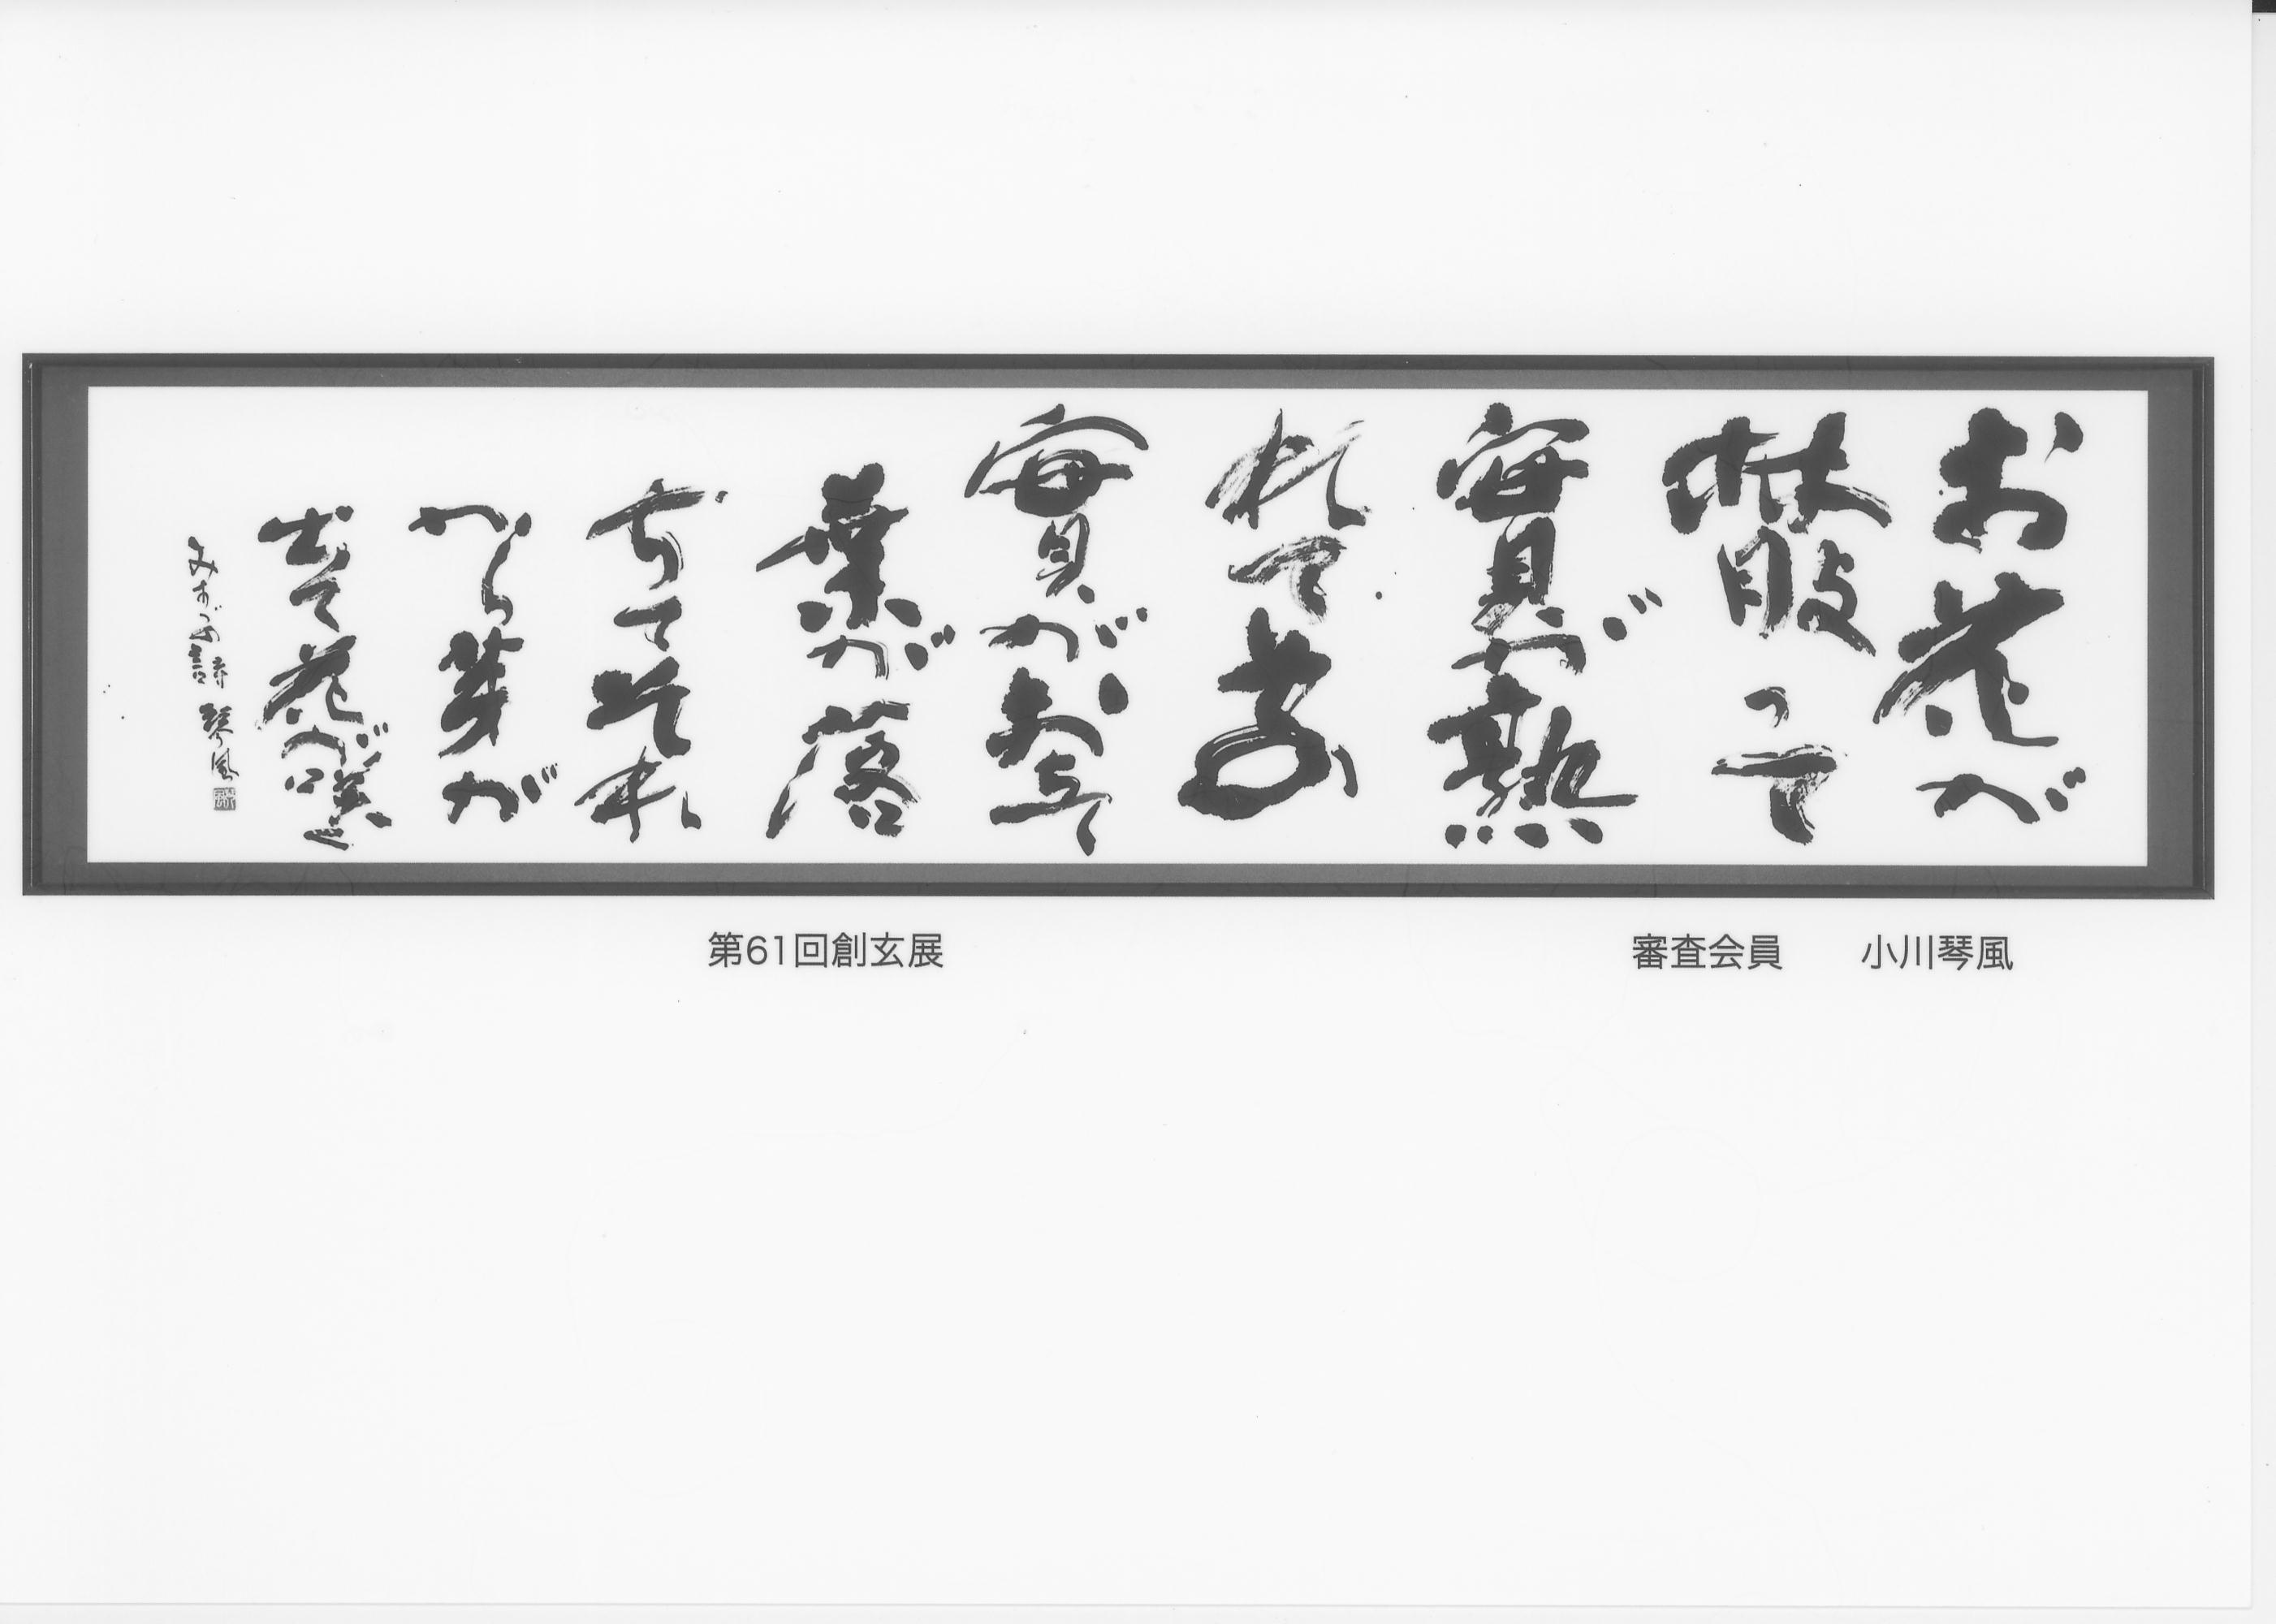 お花が
散って
實が熟
れてその
實が落ちて
葉が落
ちてそれ
から芽が
出て花が咲く
みすゞの詩 琴風
第61回創玄展
審査会員 小川琴風